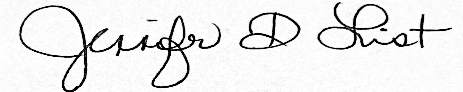 Jennifer D List